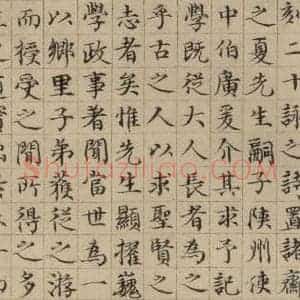 之詩置諸齋
之夏先生嗣子陝州使
中伯廣爰介其求予記
學既從大人長者為之
乎古之人以求聖賢之
志者矣惟先生顯擢巍
學政事者聞當世為一
以鄉里子弟獲從之游
而授受之間所得之多
shufaziliao.com